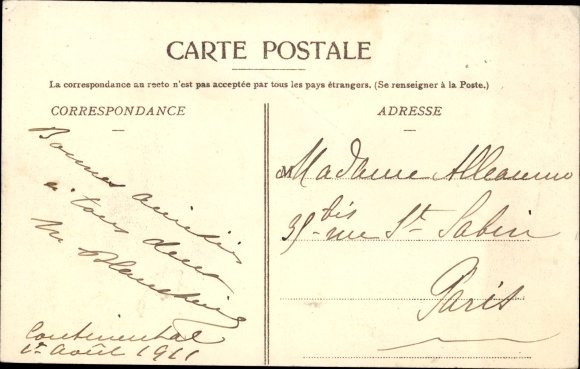 CARTE POSTALE
La correspondance au recto n'est pas acceptée par tous les pays étrangers. (Se renseigner à la Poste.)
CORRESPONDANCE
Bonnes amitiés
à tous deux
Continental
1er Août 1911
ADRESSE
Madame
35 bis rue St Sabin
Paris